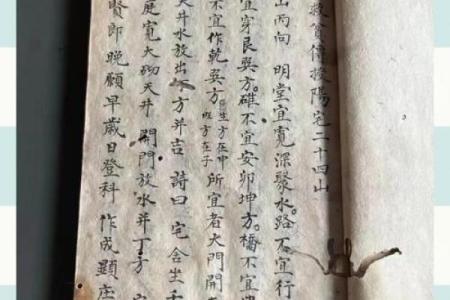 救貧傳授陽宅二十四山
山丙向 明堂宜寬深聚水路不宜行
宜穿艮巽方碓不宜安卯坤方橋不宜
不宜作乾巽方生方在申旺方在子所宜者大門開
天井水放出丁方并吉 詩曰 宅舍坐壬
庭寬大砌天井 開門放水并丁方
賢郎晚願早歲日登科 作成顯庄